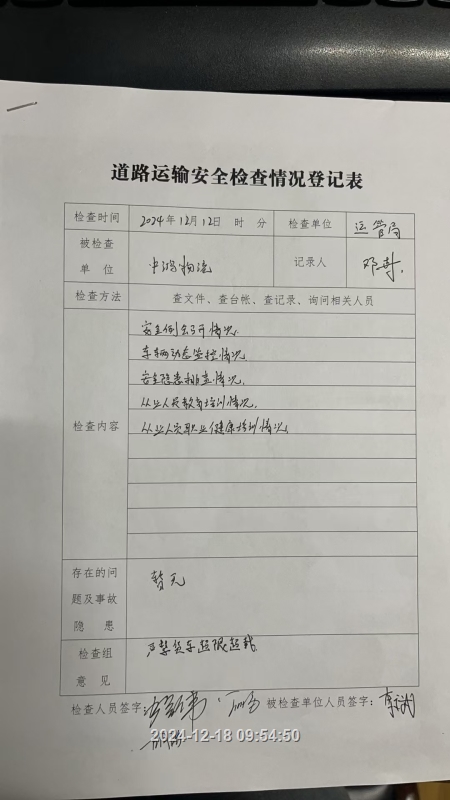 道路运输安全检查情况登记表
检查时间 2024年12月12日 时 分 检查单位 运管局
被检查单位 中鸿物流 记录人 邓
检查方法 查文件、查台帐、查记录、询问相关人员
检查内容
安全例会召开情况.
车辆动态监控情况
安全隐患排查情况.
从业人员教育培训情况.
从业人员职业健康培训情况
存在的问题及事故隐患 暂无
检查组意见 严禁货车超限超载
检查人员签字: 被检查单位人员签字:
2024-12-18 09:54:50